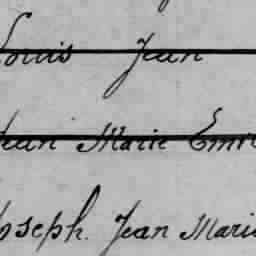 Louis Jean
Jean Marie Emile
Joseph. Jean Marie